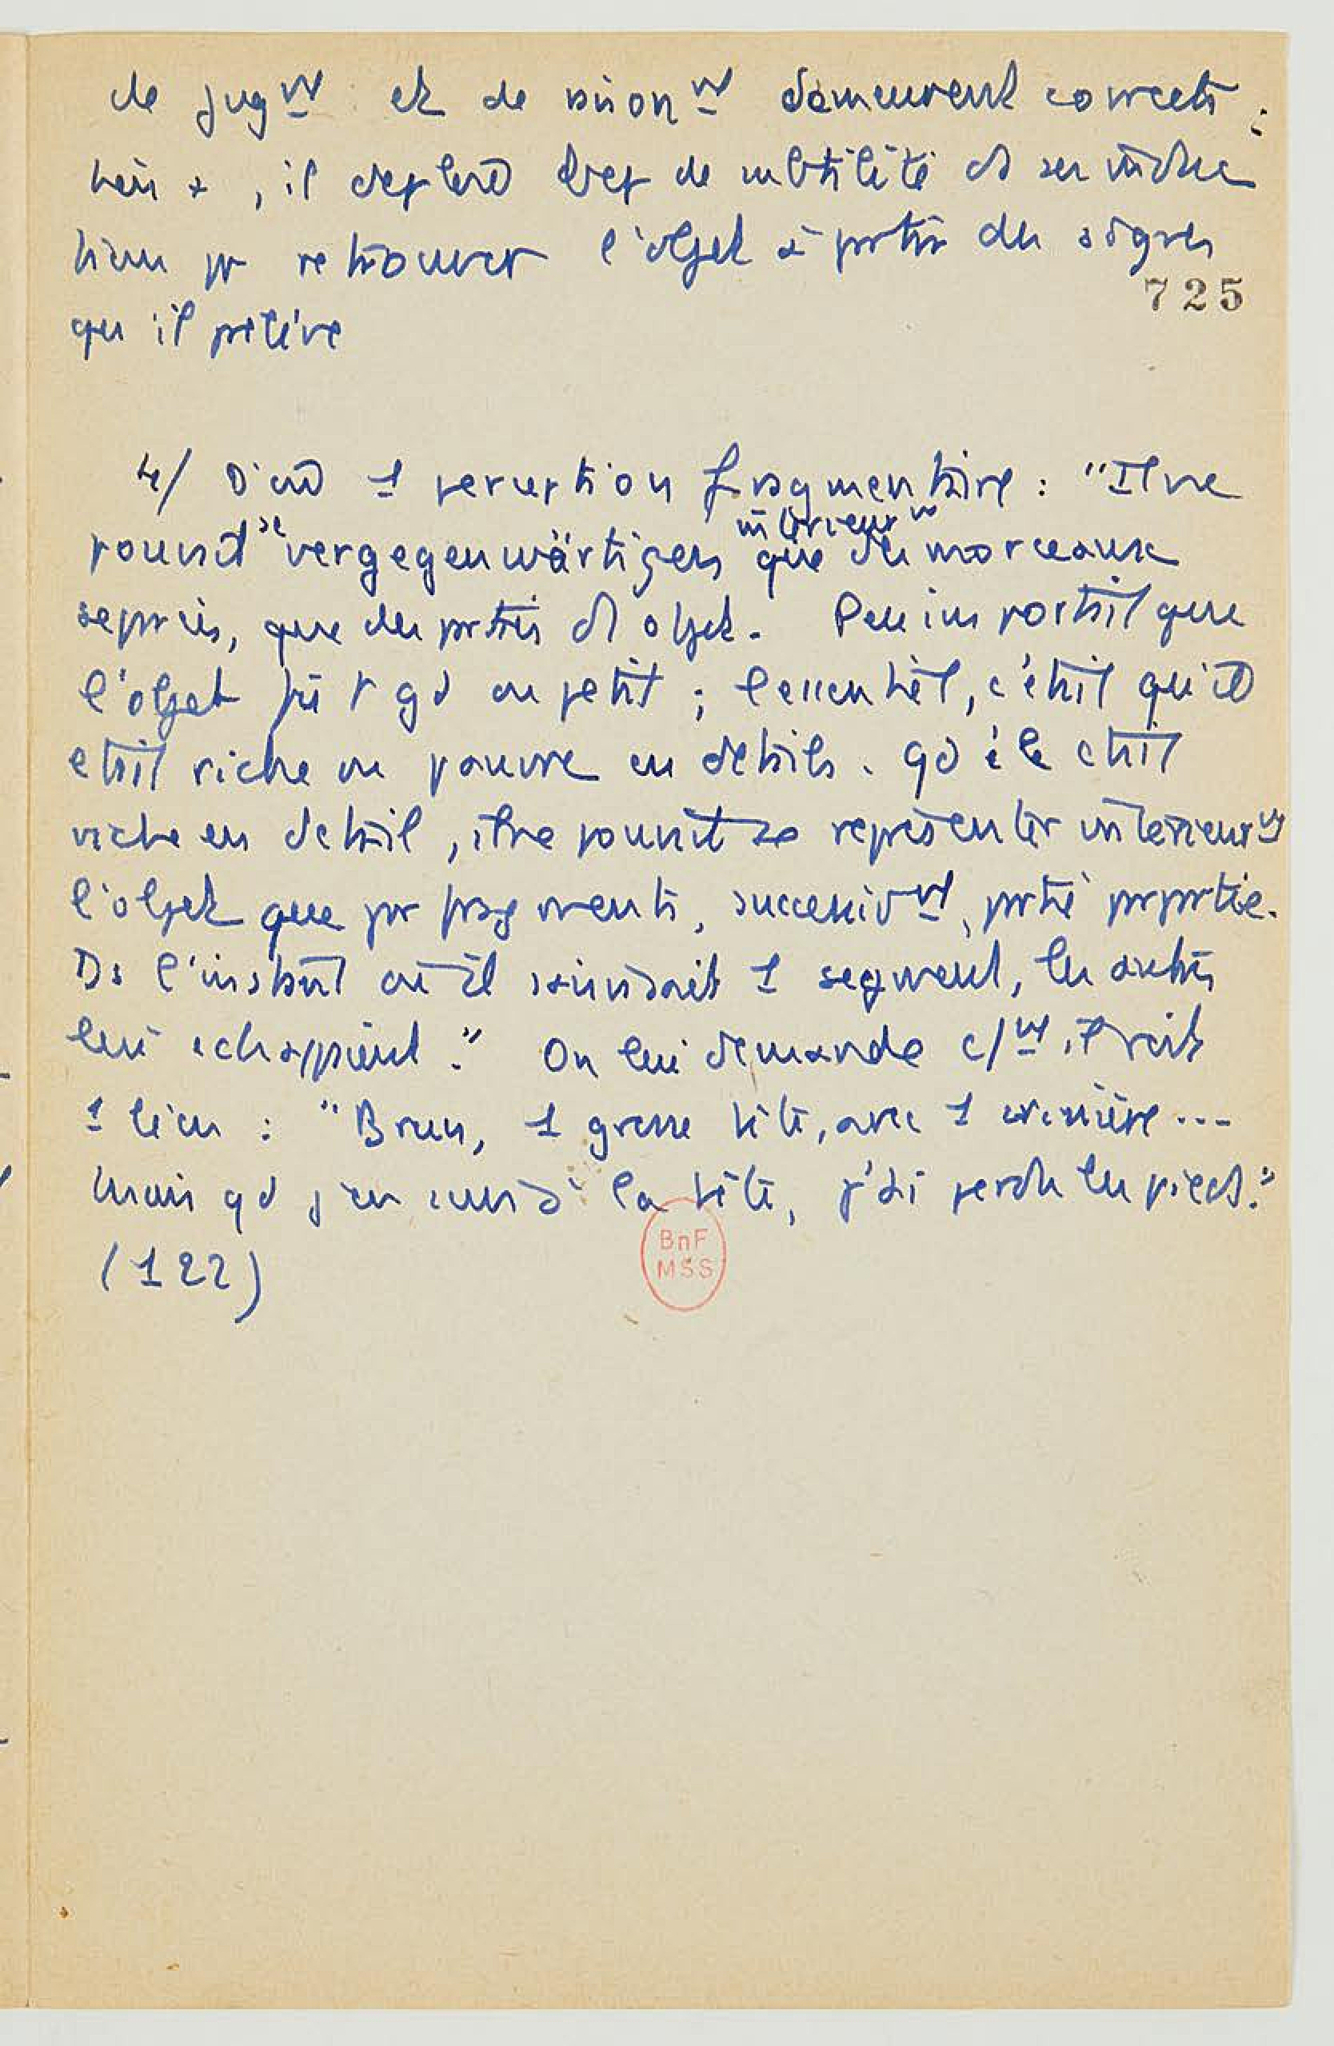 de jug^mt et de raison^mt demeurent corrects ;
bien +, il déploie bcp de subtilité et ses indica
tions pr retrouver l'objet à partir des signes
725
qu'il prélève
4/ D'où 1 perception fragmentaire : "Il ne
pouvait se vergegenwärtigen intérieur^mt que des morceaux
séparés, que des parties d'objet. Peu importait que
l'objet fût gd ou petit ; l'essentiel, c'était qu'il
était riche ou pauvre en détails. Qd il était
riche en détail, il ne pouvait se représenter intérieur^mt
l'objet que par fragments, successiv^mt, partie par partie.
Ds l'instant où il saisissait 1 segment, les autres
lui échappaient." On lui demande c/^mt il voit
1 lion : "Brun, 1 grosse tête, avec 1 crinière ...
mais qd j'en suis à la tête, j'ai perdu les pieds."
(122)
BnF
MSS